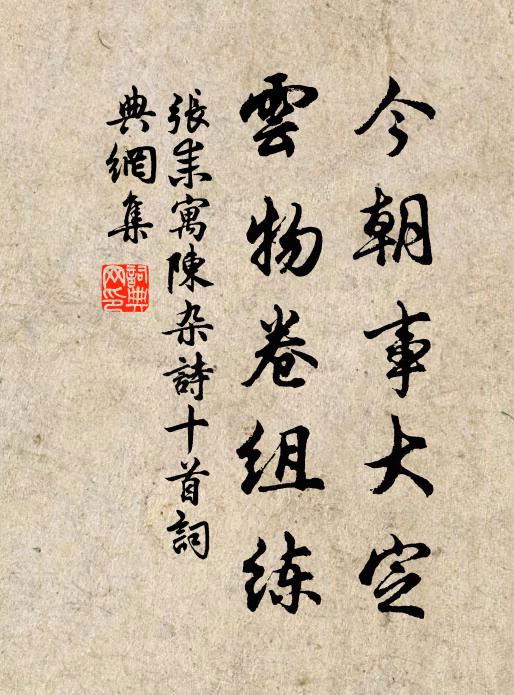 今朝事大定
雲物卷组练
張耒寓陳杂詩十首詞
典網集
詞典网印